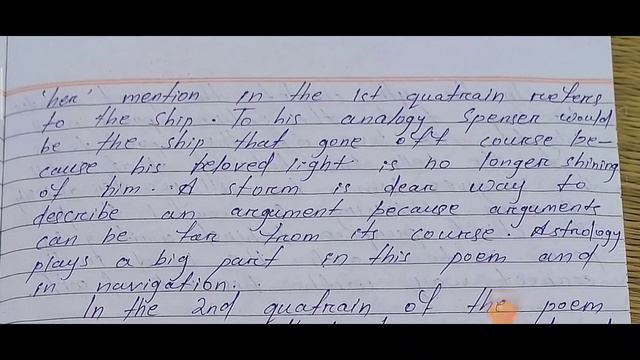 'her' mention in the 1st quatrain refers
to the ship. To his analogy Spenser would
be the ship that gone off course be-
cause his beloved light is no longer shining
of him. A storm is dear way to
describe an argument because arguments
can be far from its course. Astrology
plays a big part in this poem and
in navigation.
In the 2nd quatrain of the poem